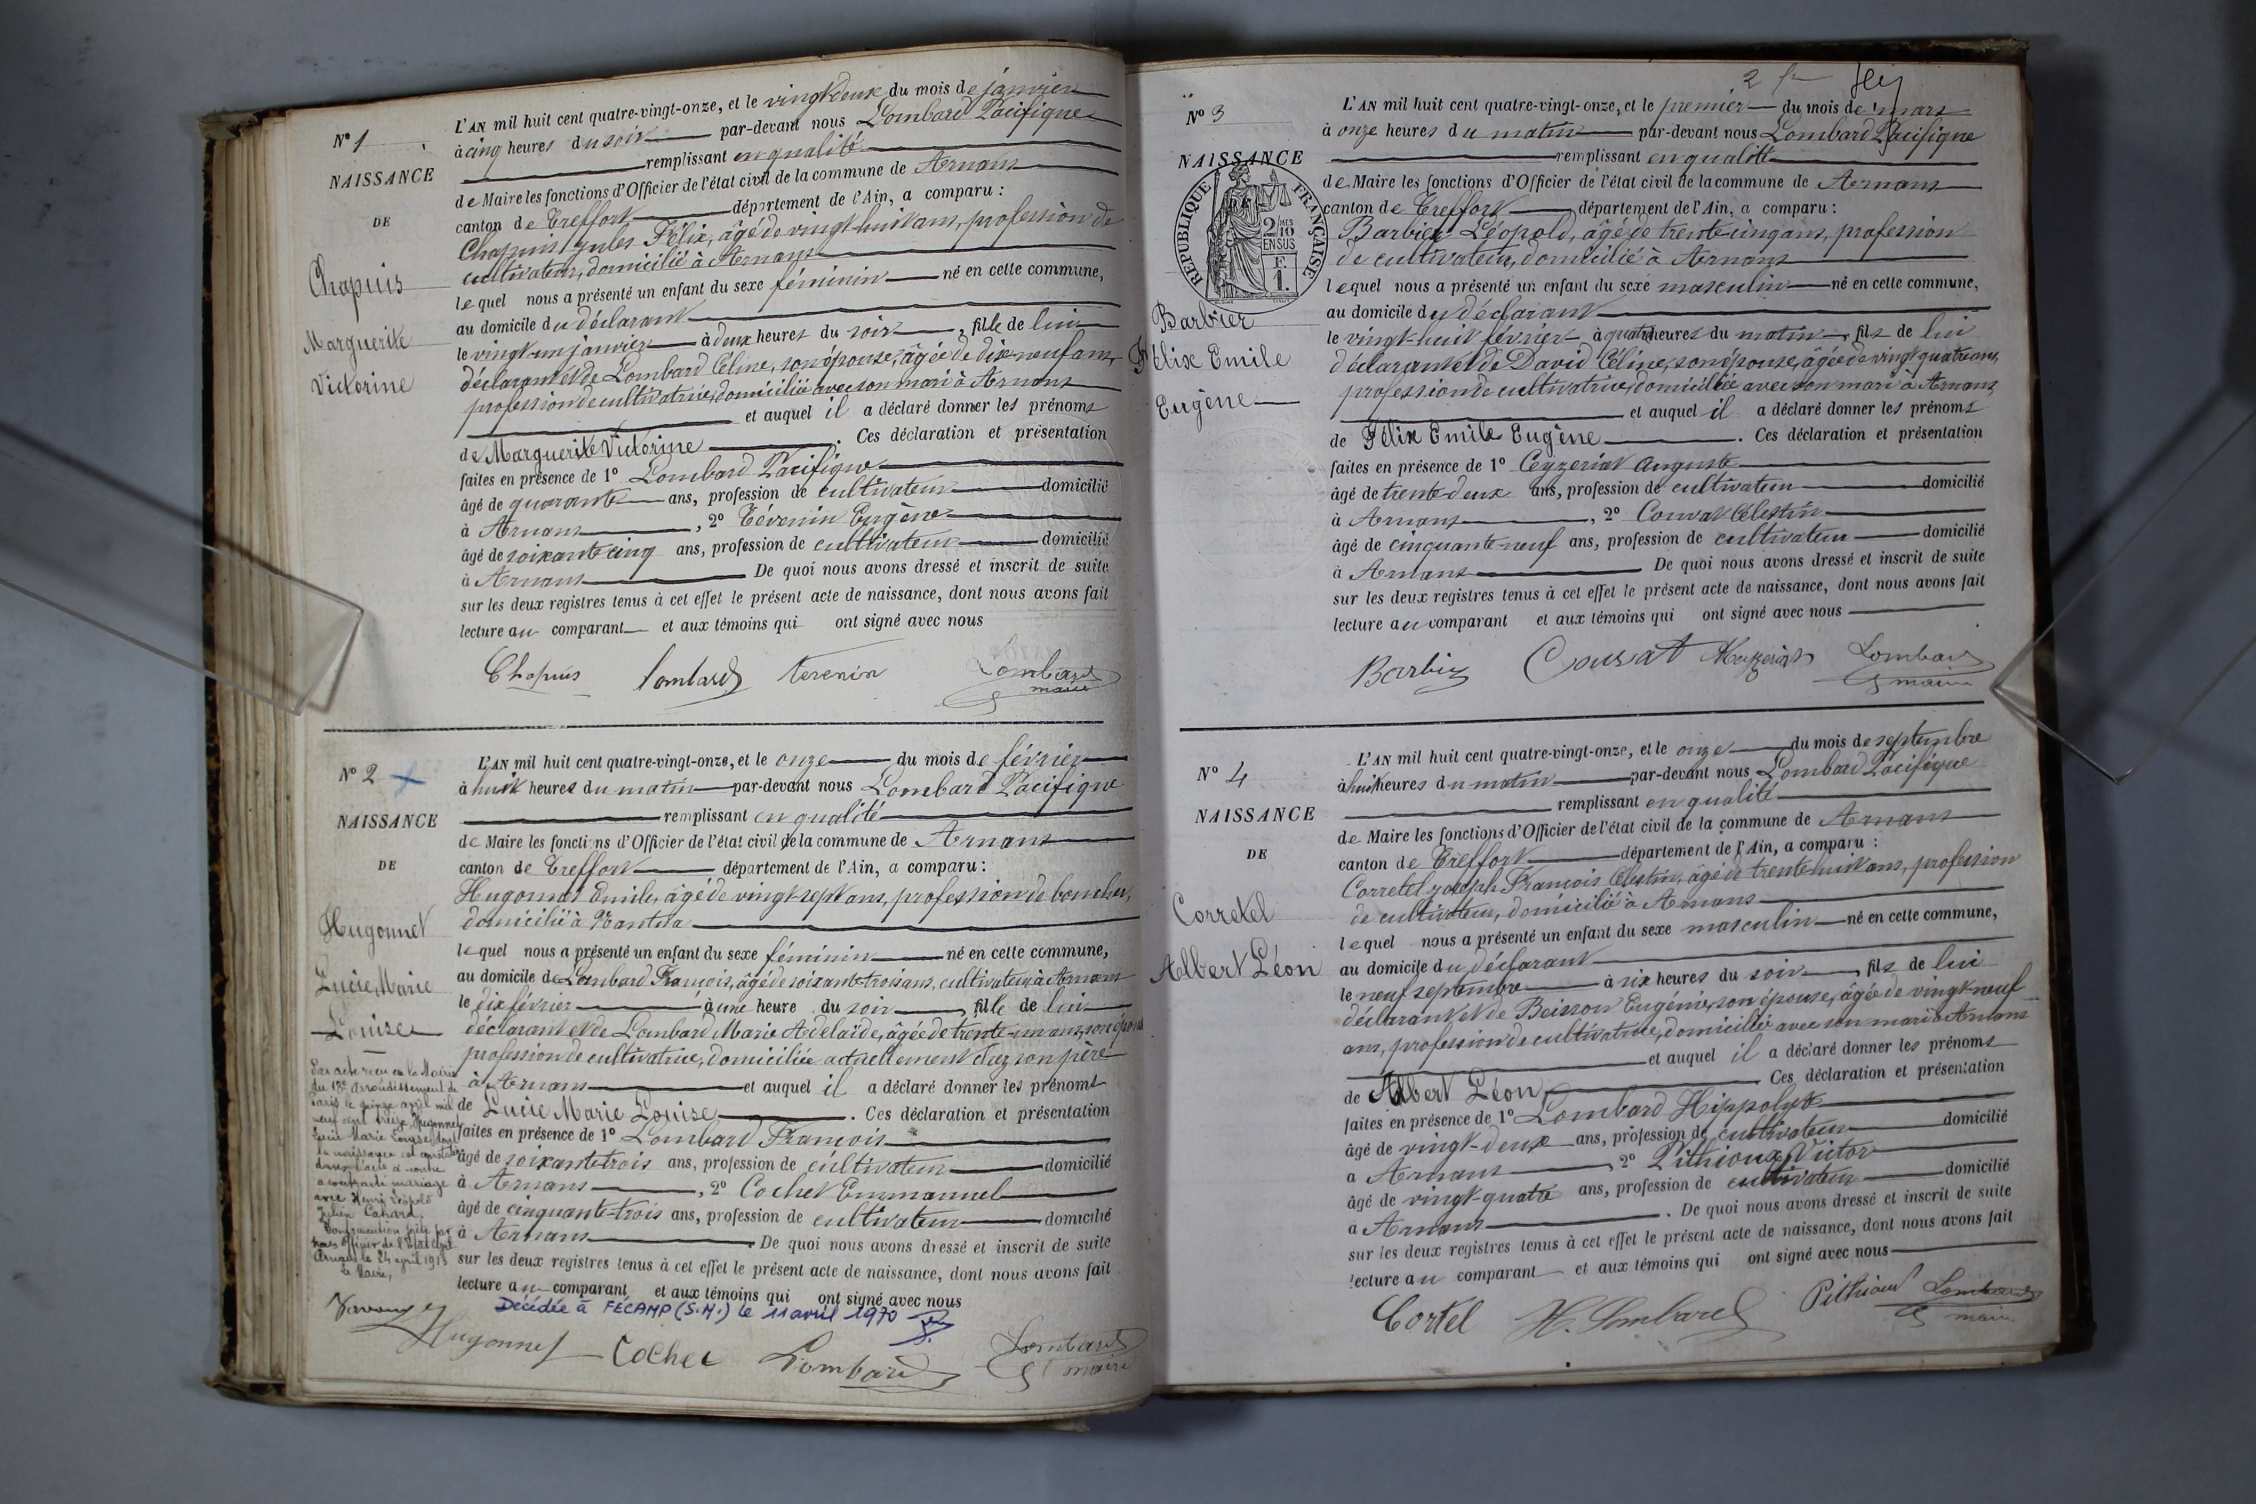 N° 1
NAISSANCE
DE
Chapuis
Marguerite
Victorine
L'AN mil huit cent quatre-vingt-onze, et le vingt deux du mois de janvier
à cinq heures du soir par-devant nous Lombard Pacifique
remplissant en qualité
de Maire les fonctions d'Officier de l'état civil de la commune de Arnans
canton de Treffort département de l'Ain, a comparu :
Chapuis Jules Félix, âgé de vingt-huit ans, profession de
cultivateur, domicilié à Arnans
lequel nous a présenté un enfant du sexe féminin né en cette commune,
au domicile du déclarant
le vingt-un janvier à deux heures du soir, fille de lui
déclarant et de Lombard Céline, son épouse, âgée de dix-neuf ans,
profession de cultivatrice, domiciliée avec son mari à Arnans
et auquel il a déclaré donner les prénoms
de Marguerite Victorine. Ces déclaration et présentation
faites en présence de 1° Lombard Pacifique
âgé de quarante ans, profession de cultivateur domicilié
à Arnans, 2° Tévenin Eugène
âgé de soixante cinq ans, profession de cultivateur domicilié
à Arnans De quoi nous avons dressé et inscrit de suite
sur les deux registres tenus à cet effet le présent acte de naissance, dont nous avons fait
lecture au comparant et aux témoins qui ont signé avec nous
Chapuis lombard Tevenin Lombard
maire
N° 2
NAISSANCE
DE
Hugonnet
Lucie Marie
Louise
Par acte reçu en la Mairie
du 17e arrondissement de
Paris le quinze avril mil
neuf cent treize, Hugonnet
Lucie Marie Louise dont
la naissance est constatée
dans l'acte ci-contre
a contracté mariage
avec Henri Léopold
Julien Cahard.
nous Officier de l'Etat Civil
Arnans le 24 avril 1913
Le Maire,
L'AN mil huit cent quatre-vingt-onze, et le onze du mois de février
à huit heures du matin par-devant nous Lombard Pacifique
remplissant en qualité
de Maire les fonctions d'Officier de l'état civil de la commune de Arnans
canton de Treffort département de l'Ain, a comparu :
Hugonnet Emile, âgé de vingt-sept ans, profession de boucher,
domicilié à Nantua
lequel nous a présenté un enfant du sexe féminin né en cette commune,
au domicile de Lombard François, âgé de soixante-trois ans, cultivateur à Arnans
le dix février à une heure du soir, fille de lui
déclarant et de Lombard Marie Adélaïde, âgée de trente-un ans, son épouse
profession de cultivatrice, domiciliée actuellement chez son père
à Arnans et auquel il a déclaré donner les prénoms
de Lucie Marie Louise. Ces déclaration et présentation
faites en présence de 1° Lombard François
âgé de soixante-trois ans, profession de cultivateur domicilié
à Arnans, 2° Cochet Emmanuel
âgé de cinquante-trois ans, profession de cultivateur domicilié
à Arnans. De quoi nous avons dressé et inscrit de suite
sur les deux registres tenus à cet effet le présent acte de naissance, dont nous avons fait
lecture au comparant et aux témoins qui ont signé avec nous
Décédée à FÉCAMP (S.M.) le 11 avril 1970
Hugonnet Cochet Lombard Lombard
maire
N° 3
NAISSANCE
RÉPUBLIQUE FRANÇAISE
2/10 MES
EN SUS
F.
1.
Barbier
Félix Emile
Eugène
2
L'AN mil huit cent quatre-vingt-onze, et le premier du mois de mars
à onze heures du matin par-devant nous Lombard Pacifique
remplissant en qualité
de Maire les fonctions d'Officier de l'état civil de la commune de Arnans
canton de Treffort département de l'Ain, a comparu :
Barbier Léopold, âgé de trente-cinq ans, profession
de cultivateur, domicilié à Arnans
lequel nous a présenté un enfant du sexe masculin né en cette commune,
au domicile du déclarant
le vingt-huit février à quatre heures du matin, fils de lui
déclarant et de David Céline, son épouse, âgée de vingt quatre ans,
profession de cultivatrice, domiciliée avec son mari à Arnans
et auquel il a déclaré donner les prénoms
de Félix Emile Eugène. Ces déclaration et présentation
faites en présence de 1° Ceyzeriat Auguste
âgé de trente deux ans, profession de cultivateur domicilié
à Arnans, 2° Convat Célestin
âgé de cinquante-neuf ans, profession de cultivateur domicilié
à Arnans De quoi nous avons dressé et inscrit de suite
sur les deux registres tenus à cet effet le présent acte de naissance, dont nous avons fait
lecture au comparant et aux témoins qui ont signé avec nous
Barbier Lombard
maire
N° 4
NAISSANCE
DE
Corretel
Albert Léon
L'AN mil huit cent quatre-vingt-onze, et le onze du mois de septembre
à huit heures du matin par-devant nous Lombard Pacifique
remplissant en qualité
de Maire les fonctions d'Officier de l'état civil de la commune de Arnans
canton de Treffort département de l'Ain, a comparu :
Corretel Joseph François Célestin, âgé de trente-huit ans, profession
de cultivateur, domicilié à Arnans
lequel nous a présenté un enfant du sexe masculin né en cette commune,
au domicile du déclarant
le neuf septembre à six heures du soir, fils de lui
déclarant et de Beisson Eugénie, son épouse, âgée de vingt-neuf
ans, profession de cultivatrice, domiciliée avec son mari à Arnans
et auquel il a déclaré donner les prénoms
de Albert Léon Ces déclaration et présentation
faites en présence de 1° Lombard Hippolyte
âgé de vingt-deux ans, profession de cultivateur domicilié
à Arnans, 2° Pithioux Victor
âgé de vingt-quatre ans, profession de cultivateur domicilié
à Arnans. De quoi nous avons dressé et inscrit de suite
sur les deux registres tenus à cet effet le présent acte de naissance, dont nous avons fait
lecture au comparant et aux témoins qui ont signé avec nous
Cortel H. Lombard Pithioux Lombard
maire